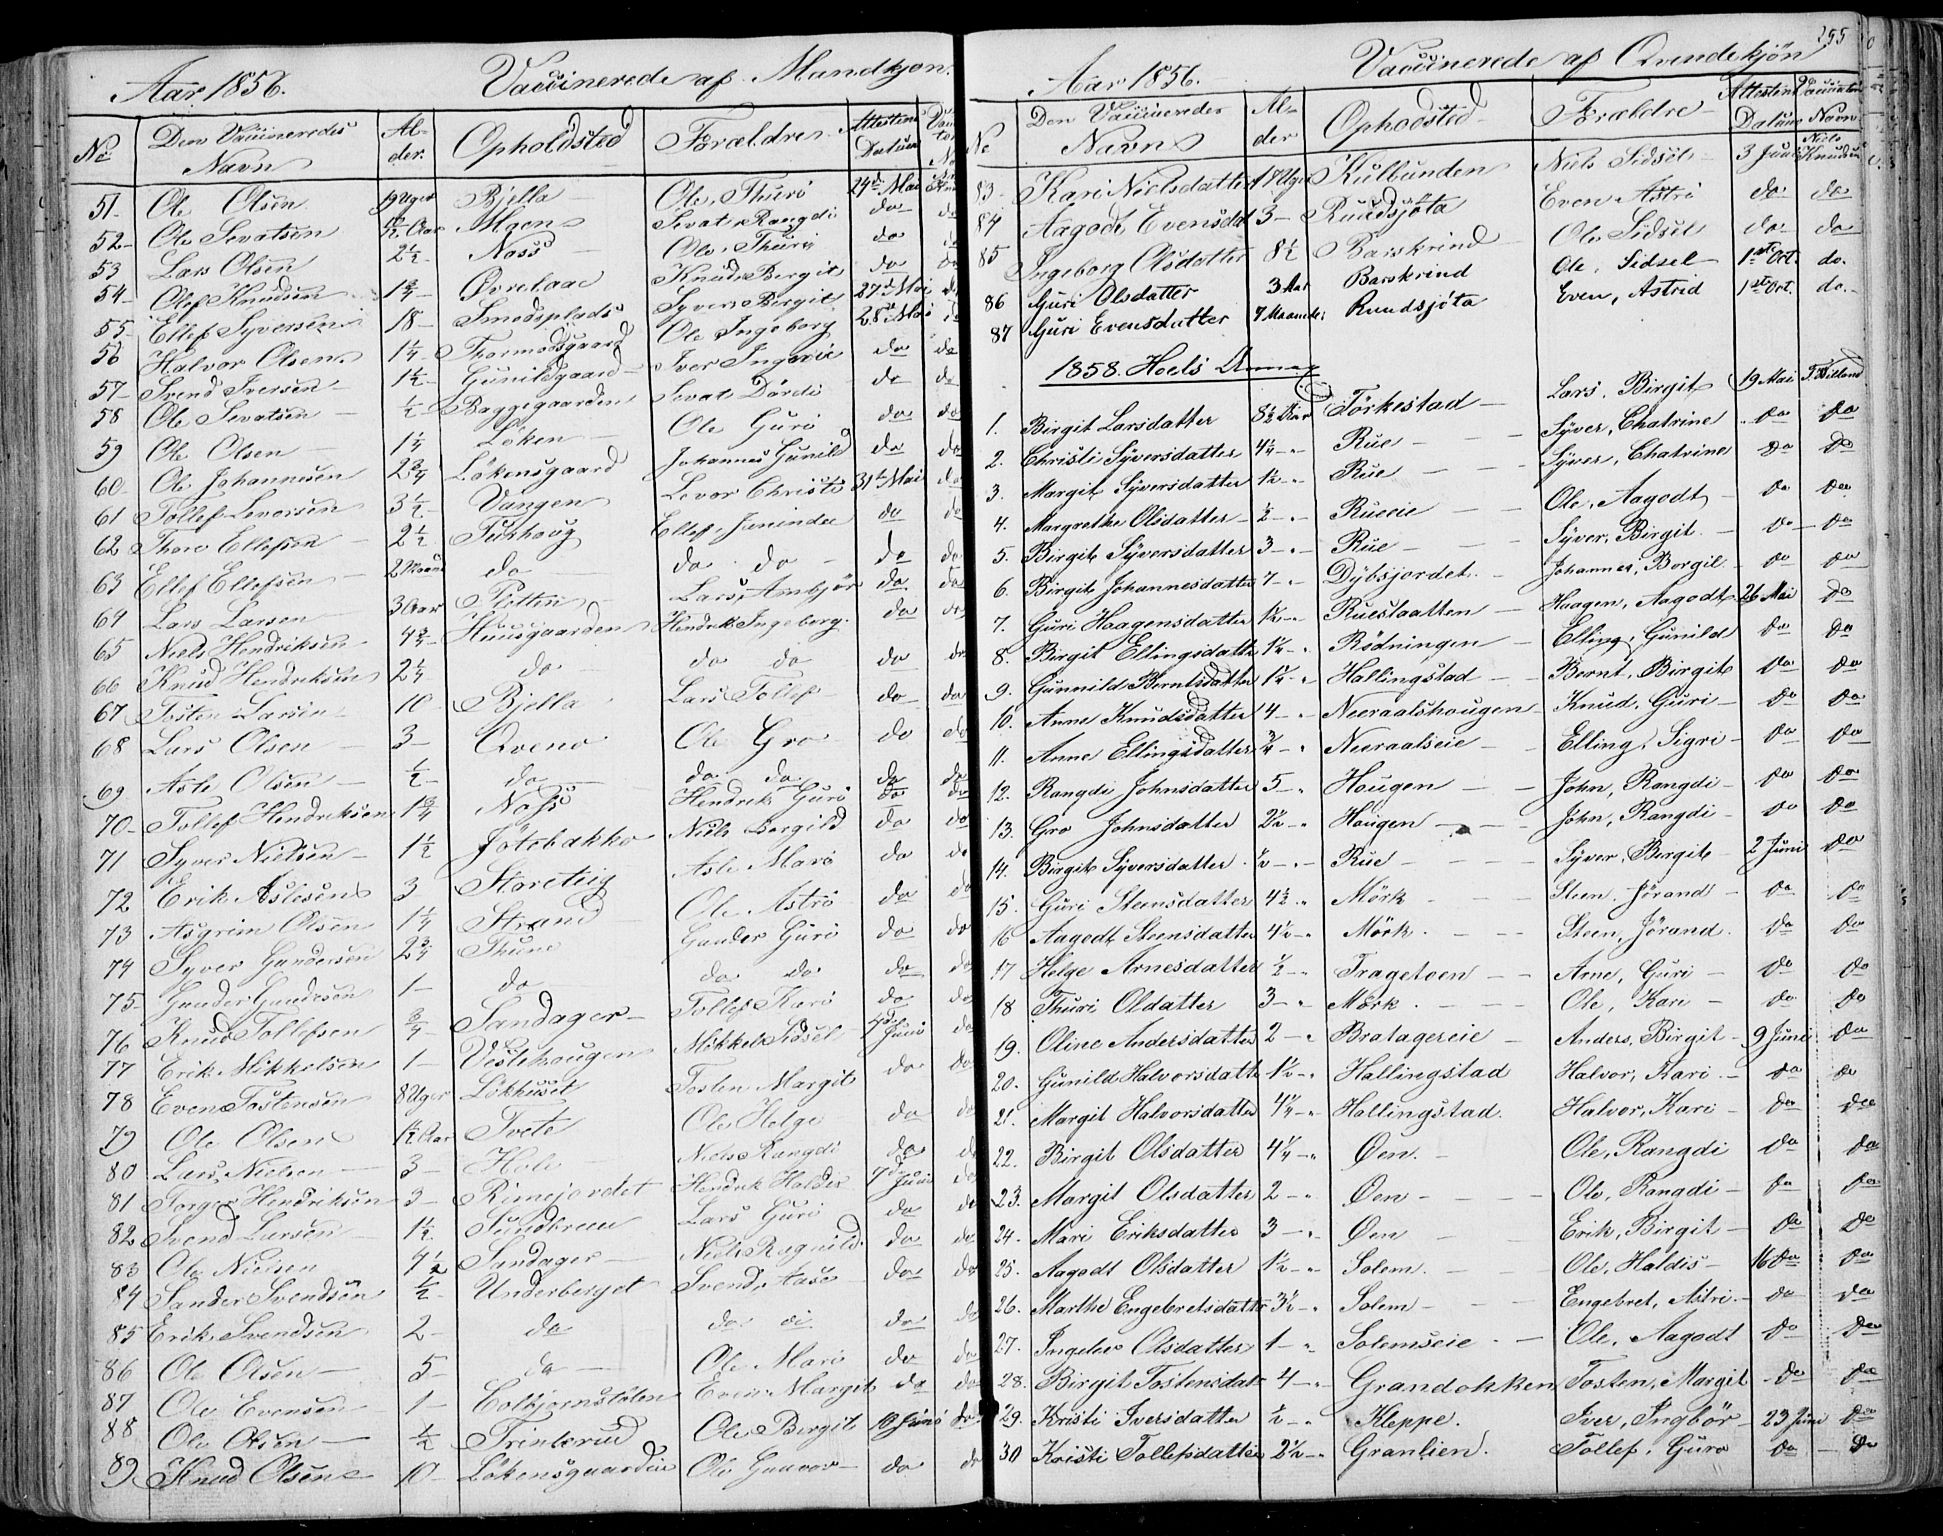 Aar 1856. Vaccinerede af Mandkjøn.
No: Den Vaccineredes Navn Alder. Opholdsted Forældre Attestens Datum
51 Ole Olsen 19 Uger Bjella Ole, Thuri 24de Mai
52 Ole Sevatsen 1½ Aar Moen Sevat, Rangdi do do
53 Lars Olsen 2½ Noss Ole, Thuri do do
54 Olef Knudsen 1¾ Øvrelaae Knud, Bergit do do
55 Ellef Syversen 18 Smedsplads Syver, Bergit 27de Mai do
56 Halvor Olsen 1¼ Thormodsgaard Ole Ingeborg 28de Mai do
57 Svend Iversen 1½ Gunildgaard Iver Ingerie do do
58 Ole Sevatsen ½ Baggegaarden Sevat Dordi do do
59 Ole Olsen 1¼ Løken Ole Guro do do
60 Ole Johannesen 2¾ Løkensgaard Johannes Gunild do do
61 Tollef Levorsen 3½ Vangen Levor Christi 31te Mai do
62 Thore Ellefsen 2½ Tukhoug Ellef, do do
63 Ellef Ellefsen 2 do do do do do
64 Lars Larsen 3 Aar Pletten Lars, Ambjør do do
65 Niels Hendriksen 4¾ Huusgaarden Hendrik Ingeborg. do do
66 Knud Hendriksen 2¼ do do do do do
67 Tosten Larsen 10 Bjella Lars Tollef do do
68 Lars Olsen 3 Qveno Ole Gro do do
69 Asle Olsen ½ do do do do do
70 Tollef Hendriksen 1¾ Noss Hendrik Guro do do
71 Syver Nielsen 1½ Jøtobakke Niels Bergild do do
72 Erik Aslesen 3 Storeteig Asle Mari do do
73 Asgrim Olsen 1¼ Strand Ole Astri do do
74 Syver Gundersen 2¾ Thune Gunder Guri do do
75 Gunder Gundersen 1 do do do do do
76 Knud Tollefsen ¾ Sandager Tollef Kari do do
77 Erik Mikkelsen 1 Vestehougen Mikkel Sidsel Juni do
78 Even Tostensen 8 Uger Løkhuset Tosten Margit do do
79 Ole Olsen 1½ Aar Tvete Ole Helge do do
80 Lars Nielsen 3 Hole Niels Rangdi do do
81 Torger Hendriksen 3 Rimejordet Hendrik Haldis Juni do
82 Svend Larsen 1½ Lars Guri do do
83 Ole Nielsen 4½ Sandager Niels Ragnild do do
84 Sander Svendsen ½ Underberget Svend, Aase do do
85 Erik Svendsen 2 do do do do
86 Ole Olsen 5 do Ole Mari do do
87 Ole Evensen 1 Colbjørnstølen Even Margit do do
88 Ole Olsen ½ Trinterud Ole Bergit 10 Juni do
89 Knud Olsen 10 Løkensgaarden Ole Gunvor do do
255
Aar 1856. Vaccinerede af Qvindekjøn
No Den Vaccineredes Navn Alder Ophodsted Forældre Attestens Datum Vaccinatørs Navn
83 Kari Nielsdatter 18 Uger Kulbunden Niels Sidsel 3 Juni Niels Knudsen
84 Aagodt Evensdat 3 Ruudsjøta Even Astri do do
85 Ingeborg Olsdatter 8½ Barskrind Ole Sidsel do do
86 Guri Olsdatter 3 Aar Barskrind Ole, Sidsel 1ste Oct. do.
87 Guri Evensdatter 7 Maaneder Ruudsjøta Even, Astrid 1ste Oct. do.
1858. Hoels Annex
1. Birgit Larsdatter 8½ Aar Törkestad Lars, Birgit 19 Mai T. Villand
2. Christi Syversdatter 4½ Rue Syver, Chatrine do do
3. Margit Syversdatter 1½ Rue Syver, Chatrine do do
4. Margrethe Olsdatter ½ Rueeie Ole, Aagodt do do
5. Birgit Syversdatter 3 Rue Syver, Birgit do do
6. Birgit Johannesdatter 7 Dybsjordet Johannes, Borgil do do
7. Guri Haagensdatter 1½ Rueslaatten Haagen, Aagodt 26 Mai do
8. Birgit Ellingsdatter 1½ Rödningen Elling, Gunild do do
9. Gunnild Berntsdatter 1¼ Hallingstad Bernt, Birgit do do
10. Anne Knudsdatter 4 Neeraalshougen Knud, Guri do do
11. Anne Ellingsdatter ¾ Neeraalseie Elling, Sigri do do
12. Rangdi Johnsdatter 5 Hougen John, Rangdi do do
13. Gro Johnsdatter 2½ Hougen John, Rangdi do do
14. Birgit Syversdatter ½ Rue Syver, Birgit 2 Juni do
15. Guri Steensdatter 4½ Mörk Steen, Jörand do do
16 Aagodt Steensdatter 4½ Mörk Steen, Jörand do do
17 Helge Arnesdatter ½ Tragetoen Arne, Guri do do
18 Thuri Oldatter 3 Mörk Ole, Kari do do
19. Oline Andersdatter 2 Bratagereie Anders, Birgit 9 Juni do
20. Gunild Halvorsdatte 1½ Hallingstad Halvor, Kari do do
21. Margit Halvorsdatter 4¼ Hallingstad. Halvor, Kari do do
22. Birgit Olsdatter 4¼ Øen. Ole, Rangdi do do
23. Margit Olsdatter 2 Øen Ole, Rangdi do do
24. Mari Eriksdatter 3 Øen Erik, Birgit do do
25. Aagodt Olsdatter 1½ Solem. Ole, Haldis 16 do do
26. Marthe Engebretsdatter 3½ Solem Engebret, Astri do do
27. Ingeleo Olsdatter 1 Solemseie Ole, Aagodt do do
28. Birgit Tostensdat 4 Grandokken Tosten, Margit do do
29. Kristi Iversdatter ½ Kleppe. Iver, Ingbör 23 Juni do
30 Kristi Tollefsdatter 2½ Granlien. Tollef, Guro do do